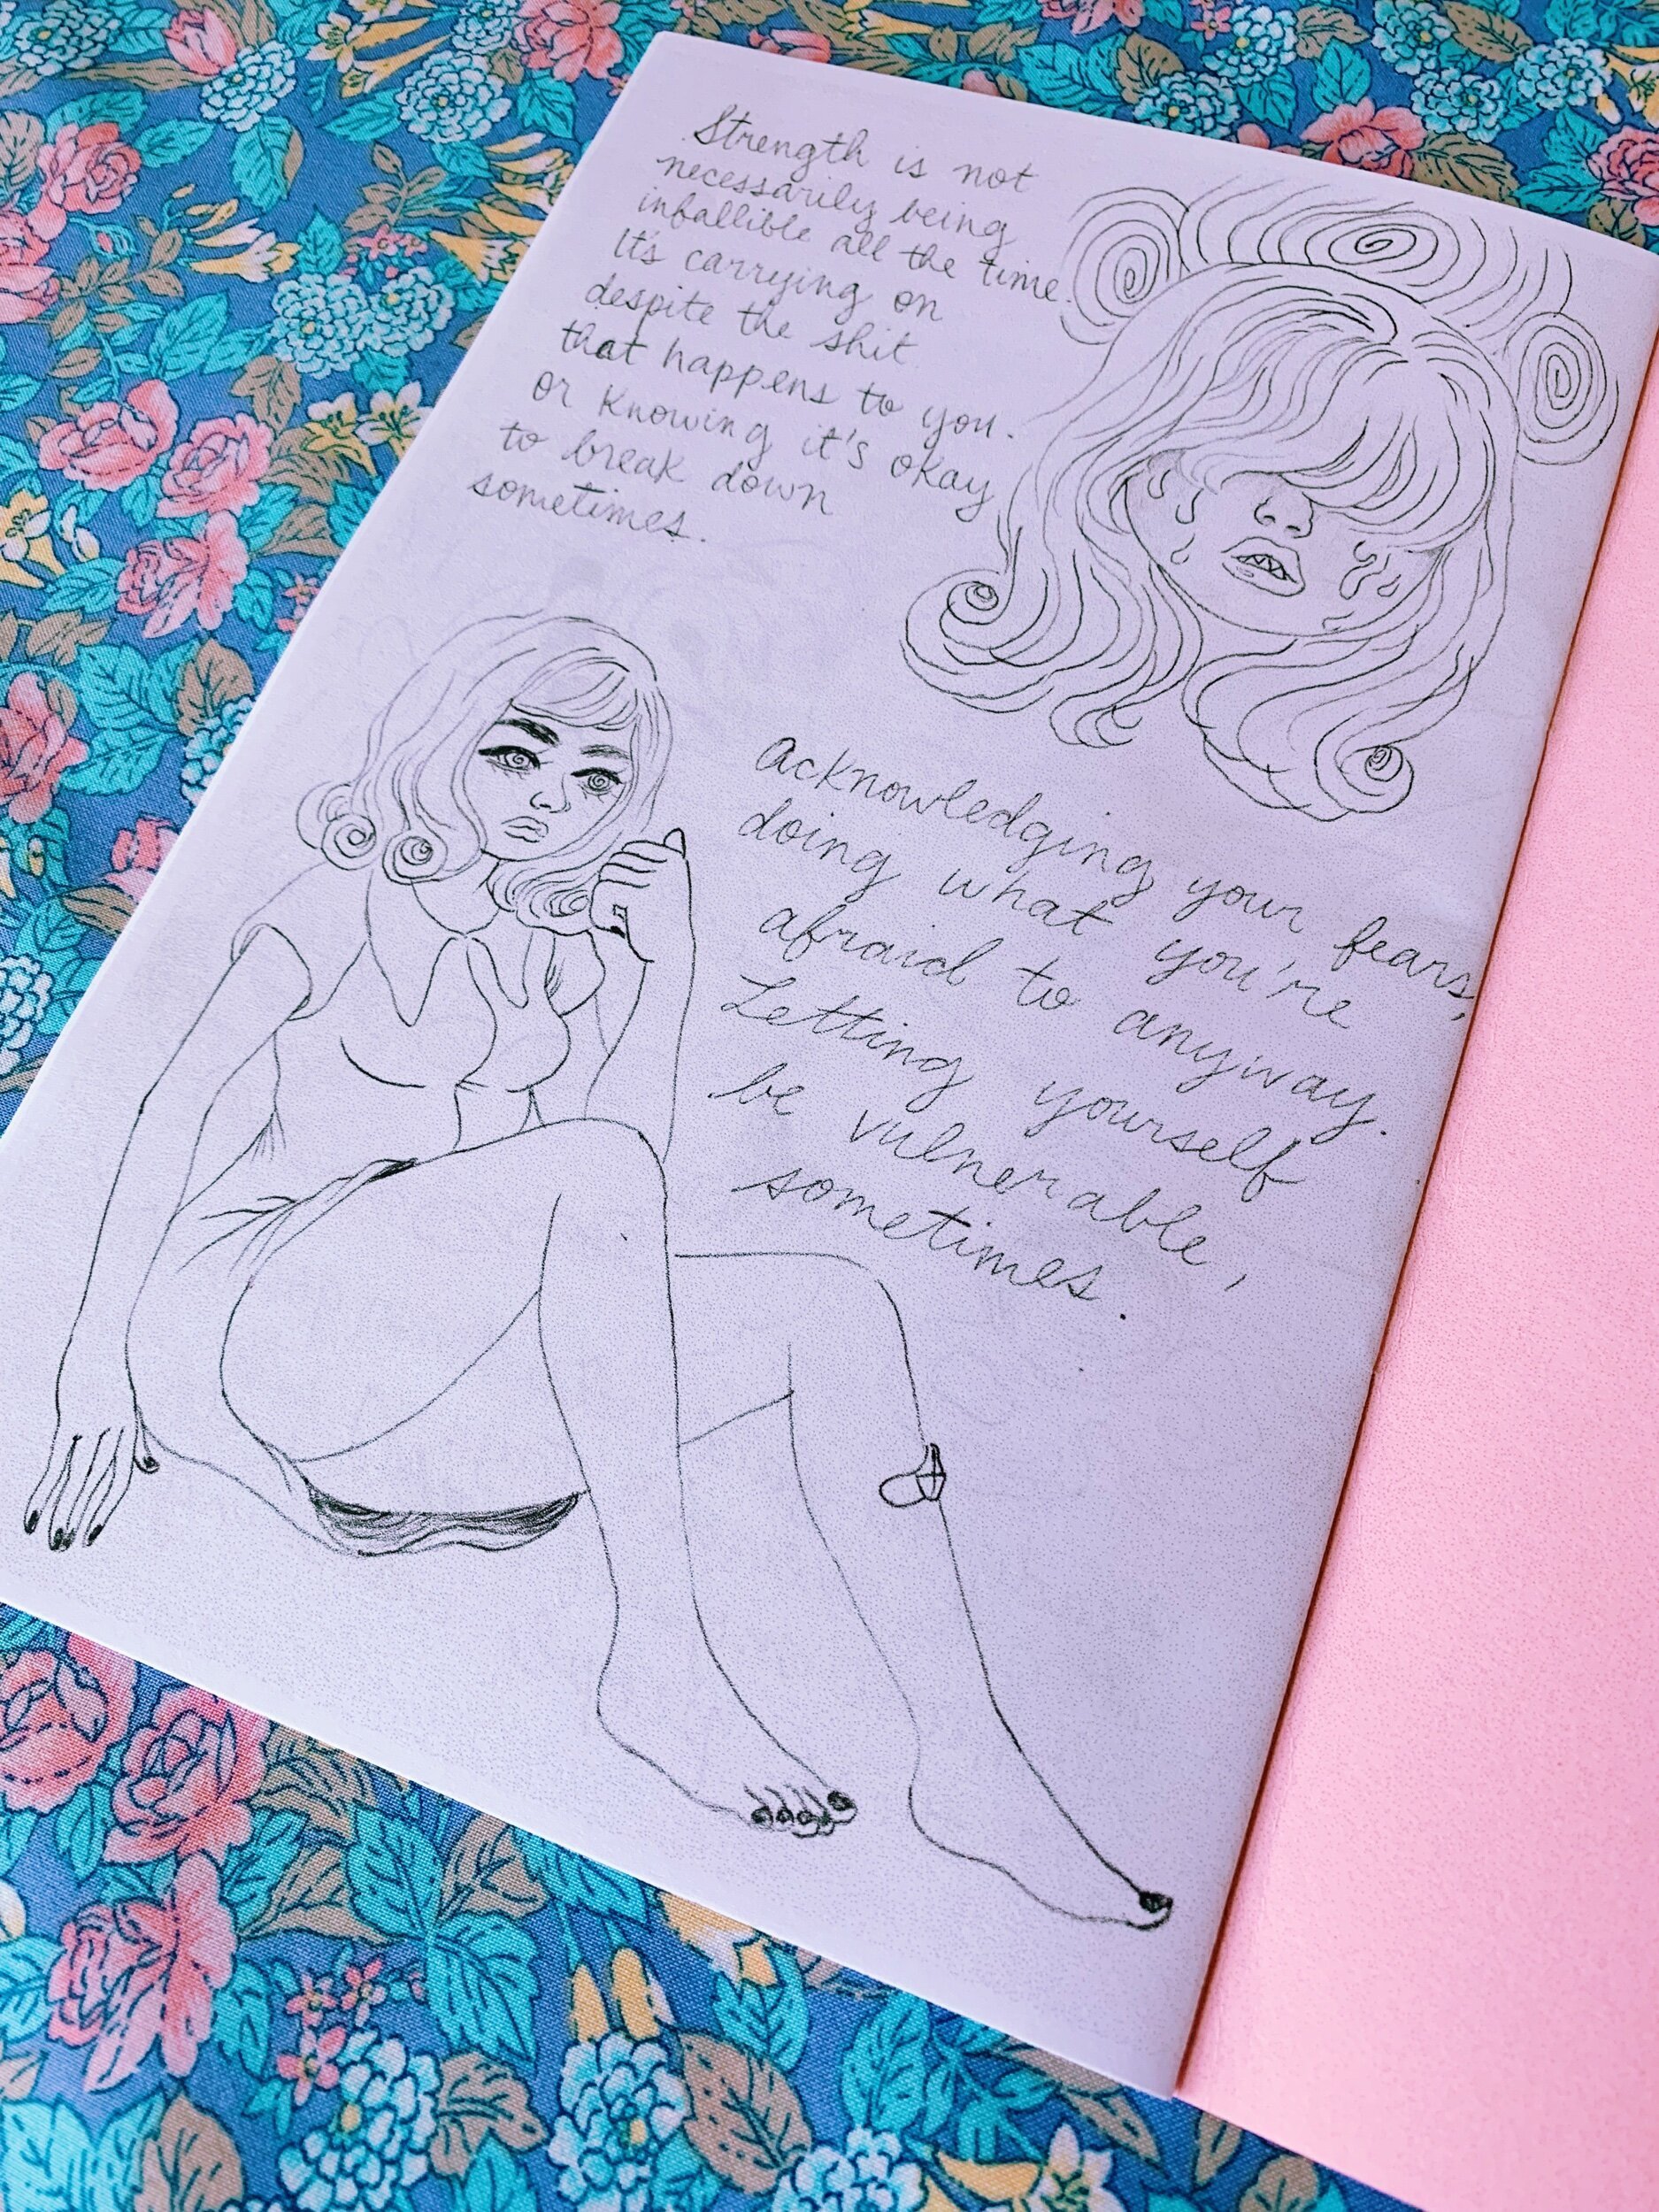 Strength is not
necessarily being
infallible all the time.
It's carrying on
despite the shit
that happens to you.
or knowing it's okay
to break down
sometimes.
Acknowledging your fears,
doing what you're
afraid to anyway.
Letting yourself
be vulnerable,
sometimes.